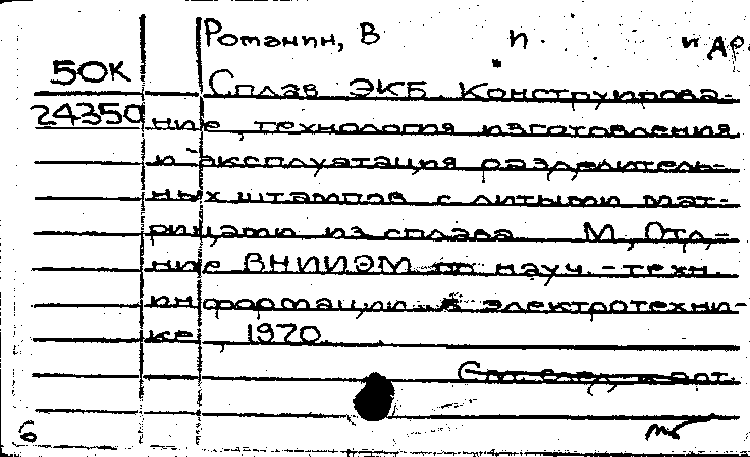 Романин, В п. и др.
50К Сплав ЭКБ. Конструирова-
24350 ние, технология изготовления
и эксплуатация разделитель-
ных штампов с литыми мат-
рицами из сплава М, Отд,-
ние ВНИИЭМ по науч.-техн.
информации в электротехни-
ке, 1970.
См. след, карт.
6